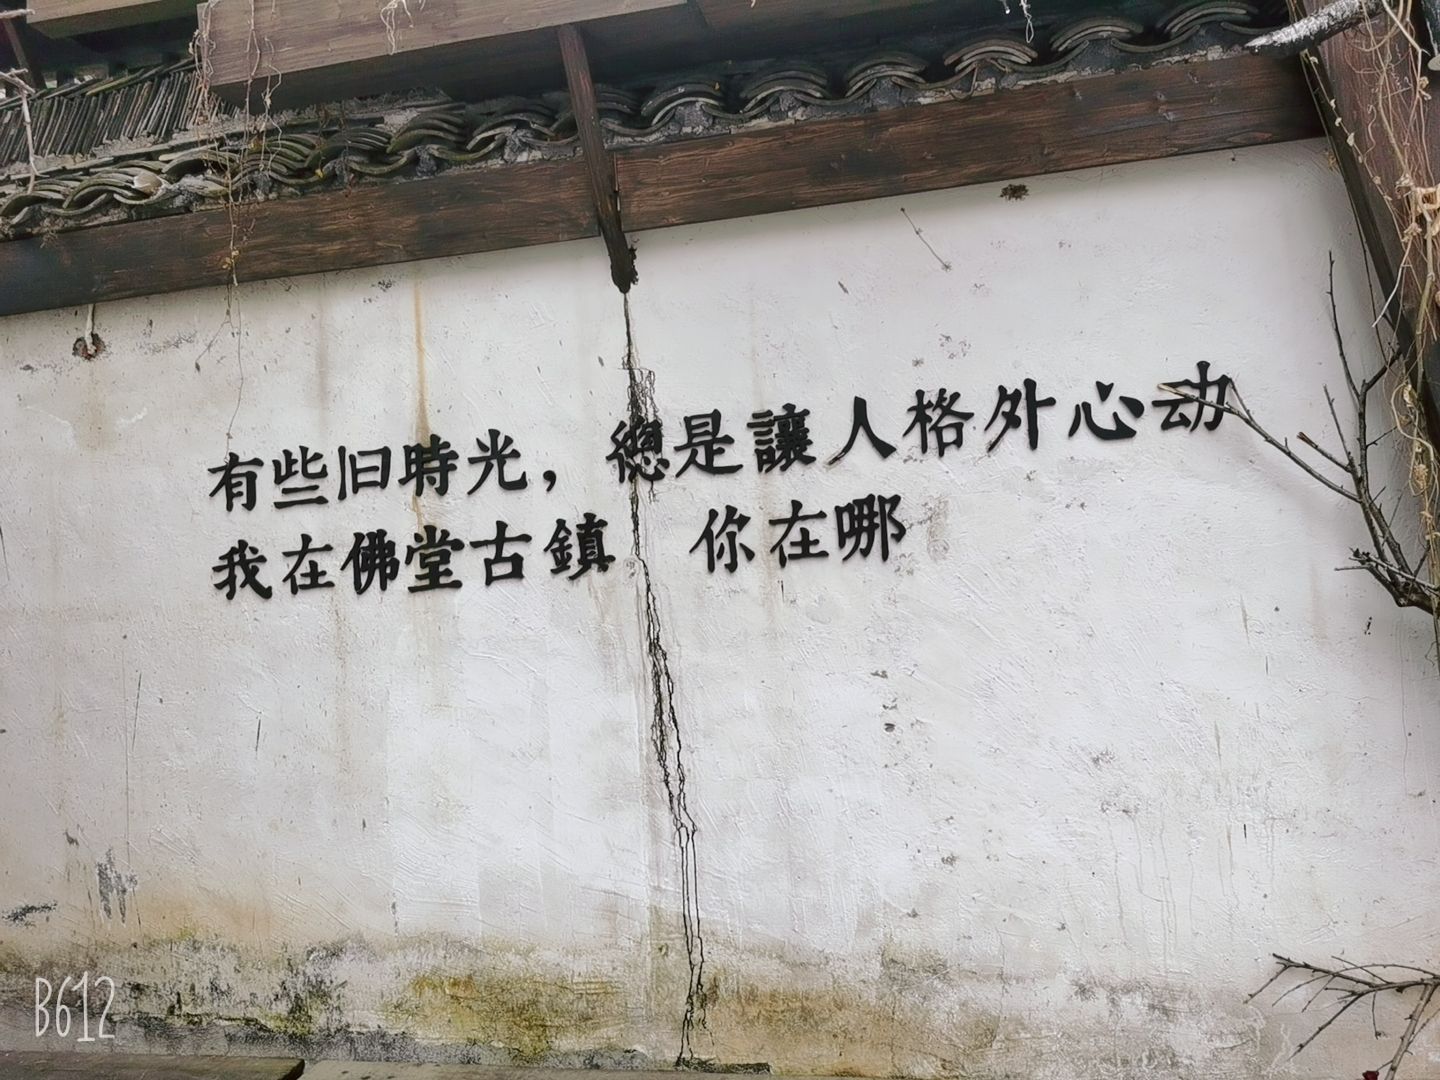 有些旧時光，總是讓人格外心动
我在佛堂古鎮 你在哪
B612